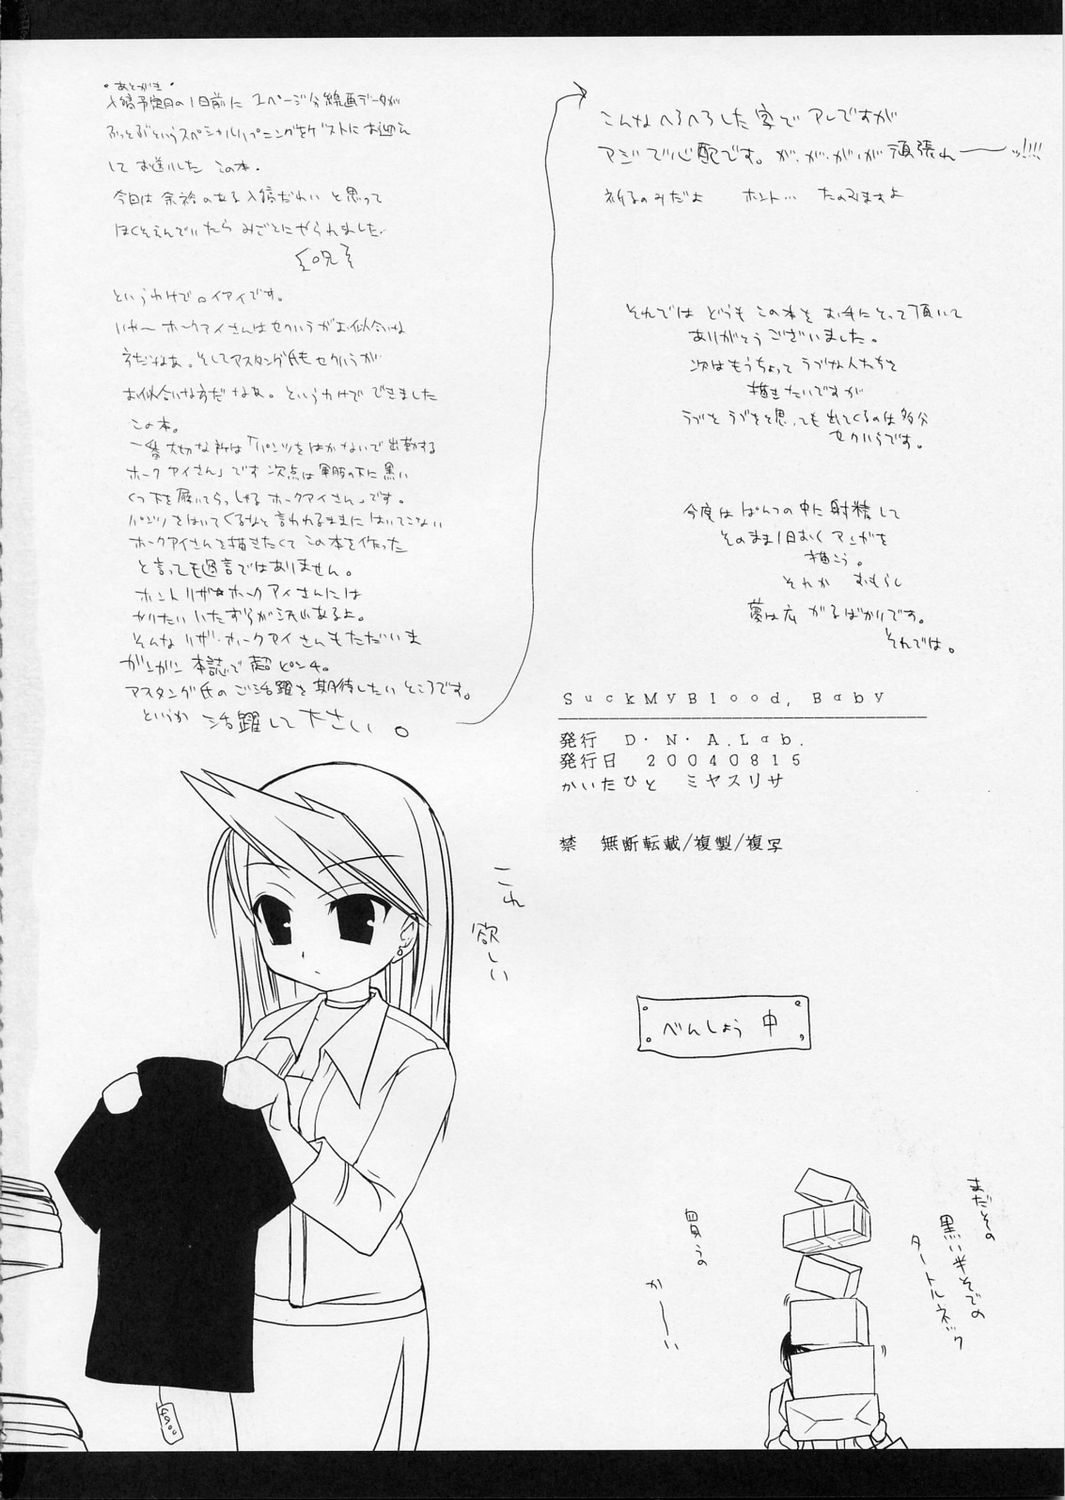 ・あとがき・
入稿予定日の1日前に 1ページ分線画データが
ぶっとぶというスペシャルハプニングをゲストにお迎え
して お送りした この本.
今日は 余裕のある入稿だわい と思って
ほくそえんでいたら みごとにやられました.
というわけでロイアイです。
いや〜 ホークアイさんはセクハラがお似合いな
方だねぇ。そしてマスタング氏もセクハラが
お似合いな方だ なぁ。というわけで できました
この本。
一番 大切な所は「パンツをはかないで出勤する
ホークアイさん」です 次点は軍服の下に黒い
くつ下を履いてらっしゃる ホークアイさん」です。
パンツをはいてくるなと言われるままに はいてこない
ホークアイさんを描きたくて この本を作った
と言っても過言ではありません。
ホント リザ★ホークアイさんには
かりたい いたずらが沢山あるよ。
そんな リザ・ホークアイさんもただいま
ガンガン 本誌で 超ピンチ。
マスタング氏の ご活躍を期待したいところです。
というか 活躍して下さい。
こんな へろへろした字で アレですが
マジで心配です。が、が、が、が頑張れ──ッ!!!!
祈るのみだよ ホント… たのみますよ
それでは どうも この本を お手にとって頂いて
ありがとうございました。
次はもうちょって ラブな人たちを
描きたいですが
ラブを ラブをと思っても出てくるのは多分
セクハラです。
今度は ぱんつの中に射精して
そのまま1日おくマンガを
描こう。
それか おもらし
夢は広 がるばかりです。
それでは。
ＳｕｃｋＭｙＢｌｏｏｄ，Ｂａｂｙ
発行　Ｄ・Ｎ・Ａ．Ｌａｂ．
発行日　２００４０８１５
かいたひと　ミヤスリサ
禁　無断転載/複製/複写
これ
欲しい
べんしょう 中
まだその
黒い半そでの
タートルネック
買うの
か──い
4900